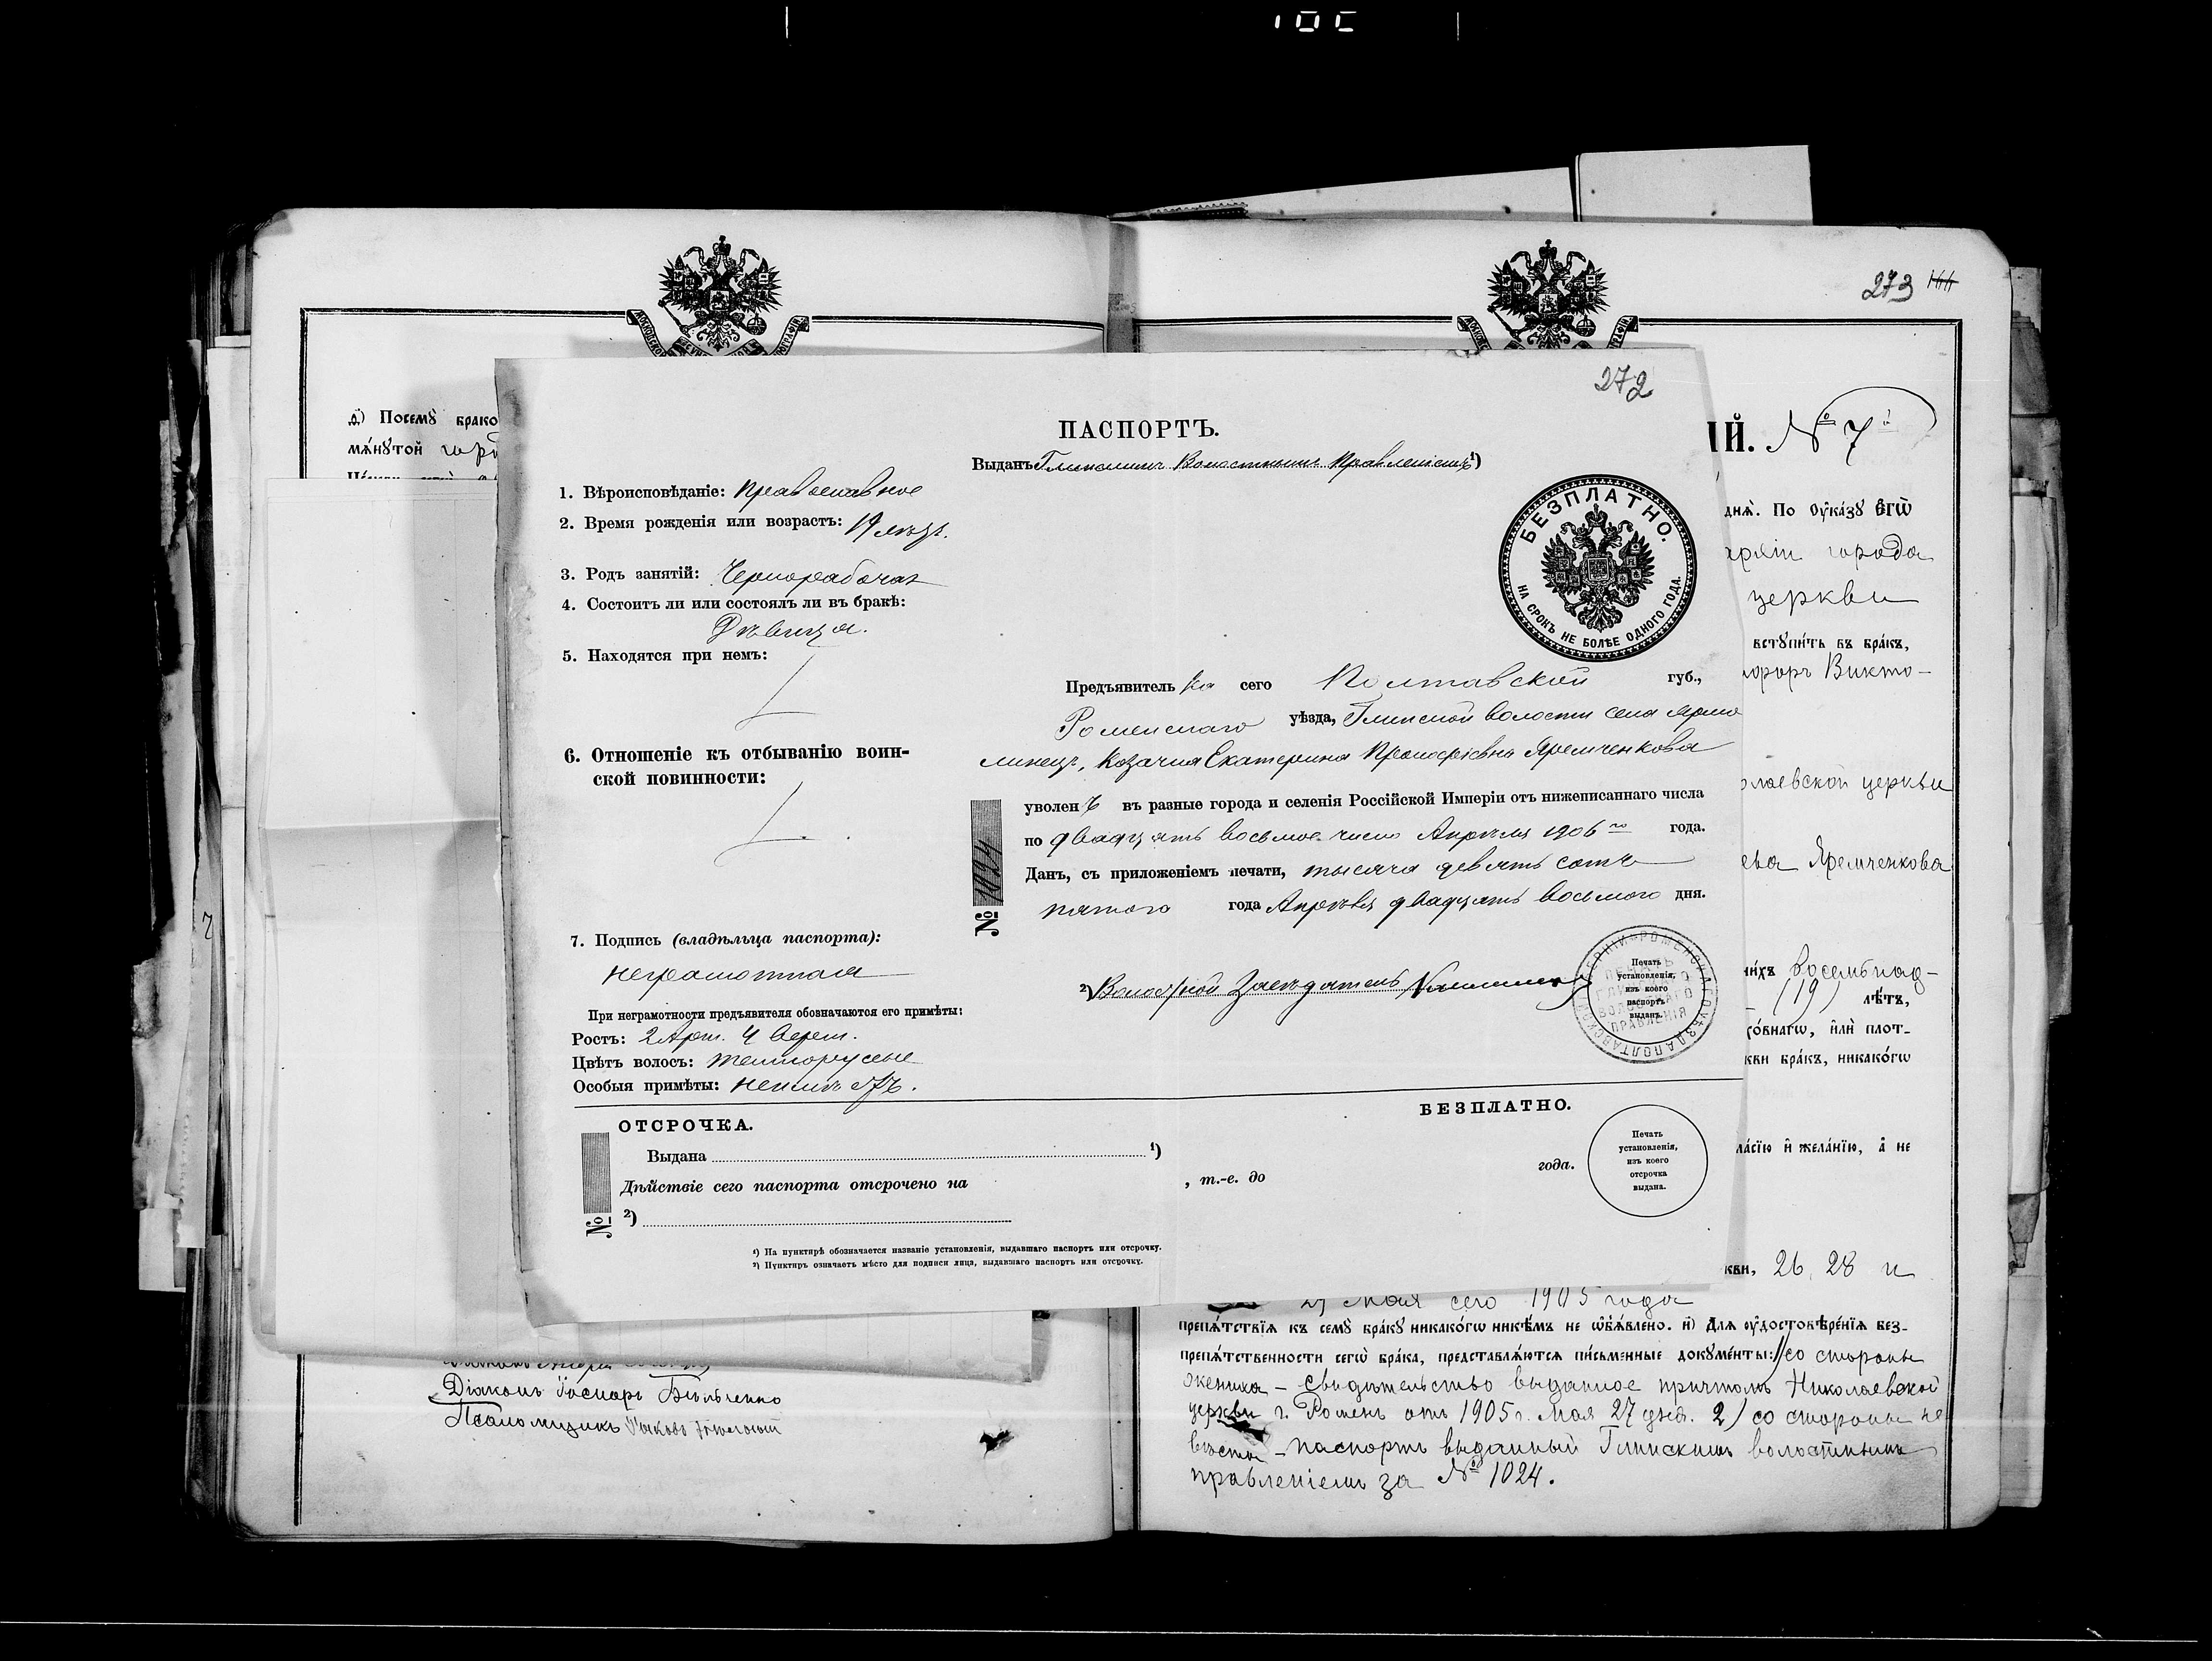 273 144
272
№ 7
ІЙ.
д҃) Посемꙋ брако
мѧ́нꙋтой
ПАСПОРТЪ.
Выданъ Глинскимъ Волостнымъ Правленіемъ ¹)
1. Вѣроисповѣданіе: Православное
2. Время рожденія или возрастъ: 19 лѣтъ.
3. Родъ занятій: Чернорабочая
4. Состоитъ ли или состоялъ ли въ бракѣ:
Дѣвица.
5. Находятся при немъ:
6. Отношеніе къ отбыванію воин-
ской повинности:
7. Подпись (владѣльца паспорта):
неграмотная
При неграмотности предъявителя обозначаются его примѣты:
Ростъ: 2 Арш. 4 верш.
Цвѣтъ волосъ: темнорусые
Особыя примѣты: неимѣетъ.
БЕЗПЛАТНО.
НА СРОКЪ НЕ БОЛѢЕ ОДНОГО ГОДА.
Предъявитель ка сего Полтавской губ.,
Роменскаго уѣзда, Глинской волости села Ярмо
линецъ, Козачка Екатерина Прокофіевна Яремченкова
уволен а въ разные города и селенія Россійской Имперіи отъ нижеписаннаго числа
по двадцять восьмое число Апрѣля 1906 го года.
Данъ, съ приложеніемъ печати, тысяча девять сотъ
пятого года Апрѣля двадцять восьмого дня.
№ 1024
²) Волостной Засѣдатель
Печать
установленія,
изъ коего
паспортъ
выданъ.
ОТСРОЧКА.
БЕЗПЛАТНО.
Выдана ¹)
Дѣйствіе сего паспорта отсрочено на , т.-е. до года.
№ ²)
Печать
установленія,
изъ коего
отсрочка
выдана.
¹) На пунктирѣ обозначается названіе установленія, выдавшаго паспортъ или отсрочку.
²) Пунктиръ означаетъ мѣсто для подписи лица, выдавшаго паспортъ или отсрочку.
днѧ̀. По ᲂу҆ка́зꙋ є҆гѡ̀
города
церкви
встꙋпи́ть въ бра́къ,
Викто-
олаевской церкви
ева Яремченкова
восемьнад-
(19) лѣ́тъ,
хо́внагѡ, и҆лѝ плот-
кви бра́къ, никако́гѡ
ла́сїю и҆ жела́нїю, а҆ не
кви, 26, 28 и
29 Мая сего 1905 года
препѧ́тствїѧ къ семꙋ̀ бра́кꙋ никако́гѡ никѣ́мъ не ѡ҆б̾ѧ́влено. и҃) Длѧ ᲂу҆достовѣре́нїѧ без-
препѧ́тственности сегѡ̀ бра́ка, представлѧ́ютсѧ пи́сьменные докꙋме́нты: 1) со стороны
жениха – свидѣтельство выданное причтомъ Николаевской
церкви г. Роменъ отъ 1905 г. Мая 27 дня. 2) со стороны не
вѣсты – паспортъ выданный Глинскимъ волостнымъ
правленіемъ за № 1024.
Діаконъ
Псаломщикъ